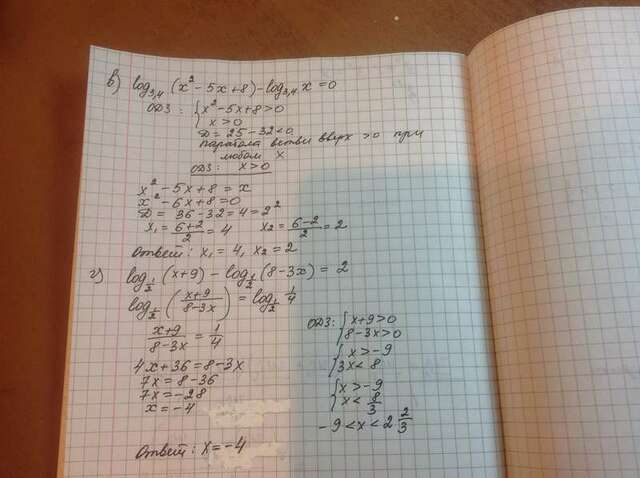 в) log₃,₄ (x² - 5x + 8) - log₃,₄ x = 0
ОДЗ: { x² - 5x + 8 > 0
x > 0
D = 25 - 32 < 0
парабола ветви вверх > 0 при
любом x
ОДЗ: x > 0
x² - 5x + 8 = x
x² - 6x + 8 = 0
D = 36 - 32 = 4 = 2²
x₁ = (6+2)/2 = 4 x₂ = (6-2)/2 = 2
Ответ: x₁ = 4, x₂ = 2
г) log_{1/2} (x+9) - log_{1/2} (8-3x) = 2
log_{1/2} ((x+9)/(8-3x)) = log_{1/2} 1/4
(x+9)/(8-3x) = 1/4
4x + 36 = 8 - 3x
7x = 8 - 36
7x = -28
x = -4
ОДЗ: { x+9 > 0
8-3x > 0
{ x > -9
3x < 8
{ x > -9
x < 8/3
-9 < x < 2 2/3
Ответ: x = -4